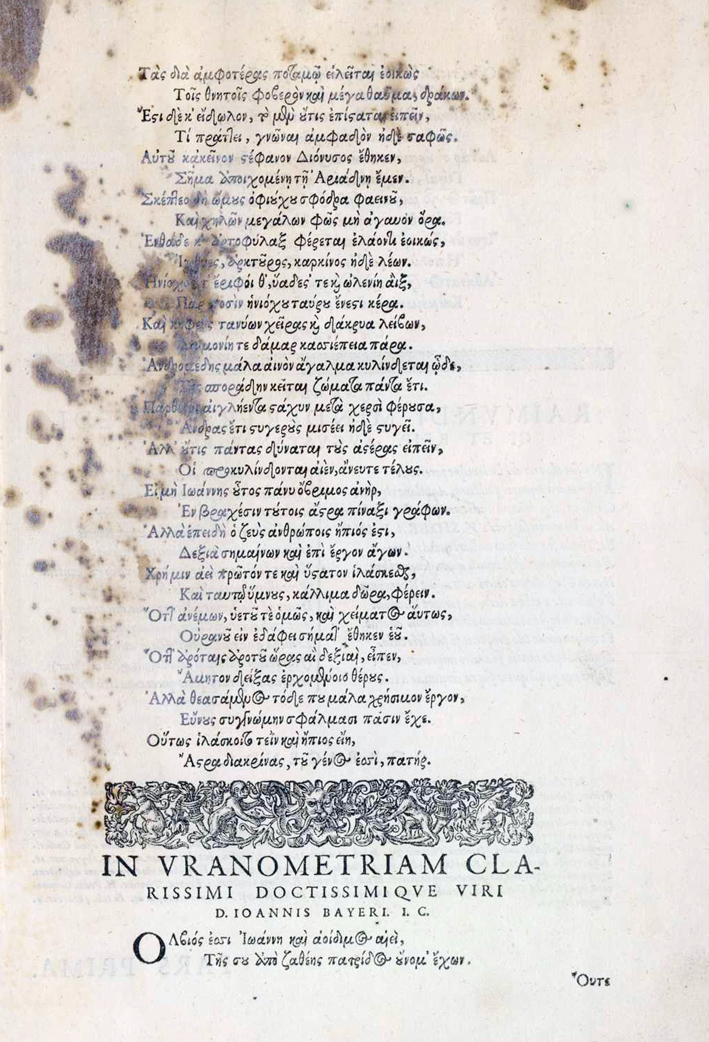 Τὰς διὰ ἀμφοτέρας ποταμῷ εἰλεῖται ἐοικὼς
Τοῖς θνητοῖς φοβερὸν καὶ μέγα θαῦμα, δράκων.
Ἔστι δ' ἐκ' εἴδωλον, τὸ μὲν ὔτις ἐπίσαται εἰπεῖν,
Τί πράττει, γνῶναι ἀμφαδὸν ἠδὲ σαφῶς.
Αὐτοῦ κἀκεῖνον στέφανον Διόνυσος ἔθηκεν,
Σῆμα ἀποιχομένῃ τῇ Ἀριάδνῃ ἔμεν.
Σκέπτεο δὴ ὤμους ὀφιούχου σφόδρα φαεινοῦ,
Καὶ χηλῶν μεγάλων φῶς μὴ ἀγαυὸν ὅρα.
Ἐνθάδε κ' ἀρτοφύλαξ φέρεται ἐλάοντι ἐοικώς,
ἀρκτοῦρος, καρκίνος ἠδὲ λέων.
ἔριφοι θ', ὑάδες τε καὶ ὠλενίη αἲξ,
ποσὶν ἡνιόχου ταύρου ἔνεστι κέρα.
Καὶ τανύων χεῖρας καὶ δάκρυα λείβων,
τε δάμαρ κασσιέπεια πάρα.
Ἀνδρομέδης μάλα αἰνὸν ἄγαλμα κυλίνδεται ὧδε,
σποράδην κεῖται ζώματα πάντα ἔτι.
αἰγλήεντα στάχυν μετὰ χερσὶ φέρουσα,
Ἄνδρας ἔτι στυγεροὺς μισέει ἠδὲ στυγεῖ.
Ἀλλ' οὔτις πάντας δύναται τοὺς ἀστέρας εἰπεῖν,
Οἱ προκυλίνδονται αἰὲν, ἄνευτε τέλους.
Εἰ μὴ Ἰωάννης οὗτος πάνυ ὄβριμος ἀνὴρ,
Ἐν βραχέσιν τούτοις ἄστρα πίναξι γράφων.
Ἀλλὰ ἐπειδὴ ὁ ζεὺς ἀνθρώποις ἤπιός ἐστι,
Δεξιὰ σημαίνων καὶ ἐπὶ ἔργον ἄγων.
Χρή μιν ἀεὶ πρῶτόν τε καὶ ὕστατον ἱλάσκεσθαι,
Καὶ ταυτῷ ὕμνους, κάλλιμα δῶρα, φέρειν.
Ὅττι ἀνέμων, ὑετοῦ τε ὁμῶς, καὶ χείματος αὔτως,
Οὐρανοῦ εἰν ἐδάφει σήματ' ἔθηκεν ἑοῦ.
Ὅττι ἀρόταις ἀρότου ὥρας αἱ δεξιαὶ, εἶπεν,
Ἄμητον δείξας ἐρχομένοιο θέρους.
Ἀλλὰ θεασάμενος τόδε που μάλα χρήσιμον ἔργον,
Εὔνους συγγνώμην σφάλμασι πᾶσιν ἔχε.
Οὕτως ἱλάσκοιτό τεῒν καὶ ἤπιος εἴη,
Ἄστρα διακρίνας, τοῦ γένος ἐστὶ, πατήρ.
IN VRANOMETRIAM CLA-
RISSIMI DOCTISSIMIQVE VIRI
D. IOANNIS BAYERI. I. C.
Ὄλβιός ἐστι Ἰωάννη καὶ ἀοίδιμος αἰεὶ,
Τῆς σου ἀπὸ ζαθέης πατρίδος οὔνομ' ἔχων.
Οὔτε